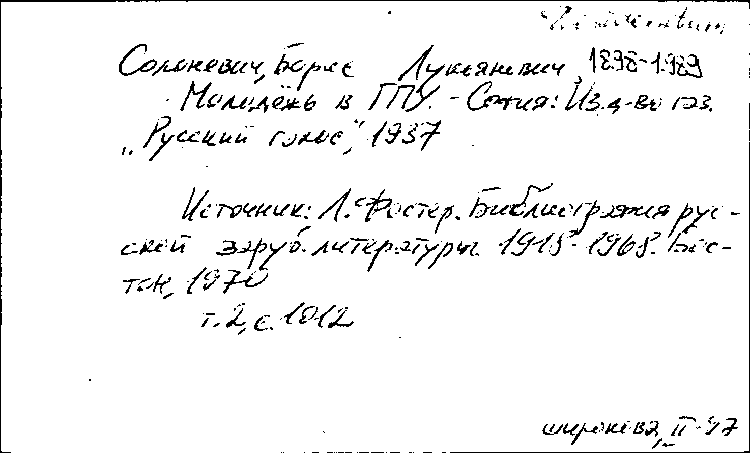 Desideratum
Солоневич, Борис Лукьянович, 1898-1989
Молодёжь в ГПУ. - София: Изд-во газ.
„Русский голос”, 1937
Источник: Л. Фостер. Библиография рус-
ской заруб. литературы 1918-1968. Бос-
тон, 1970
т.2, с.1012
широкова, II-97